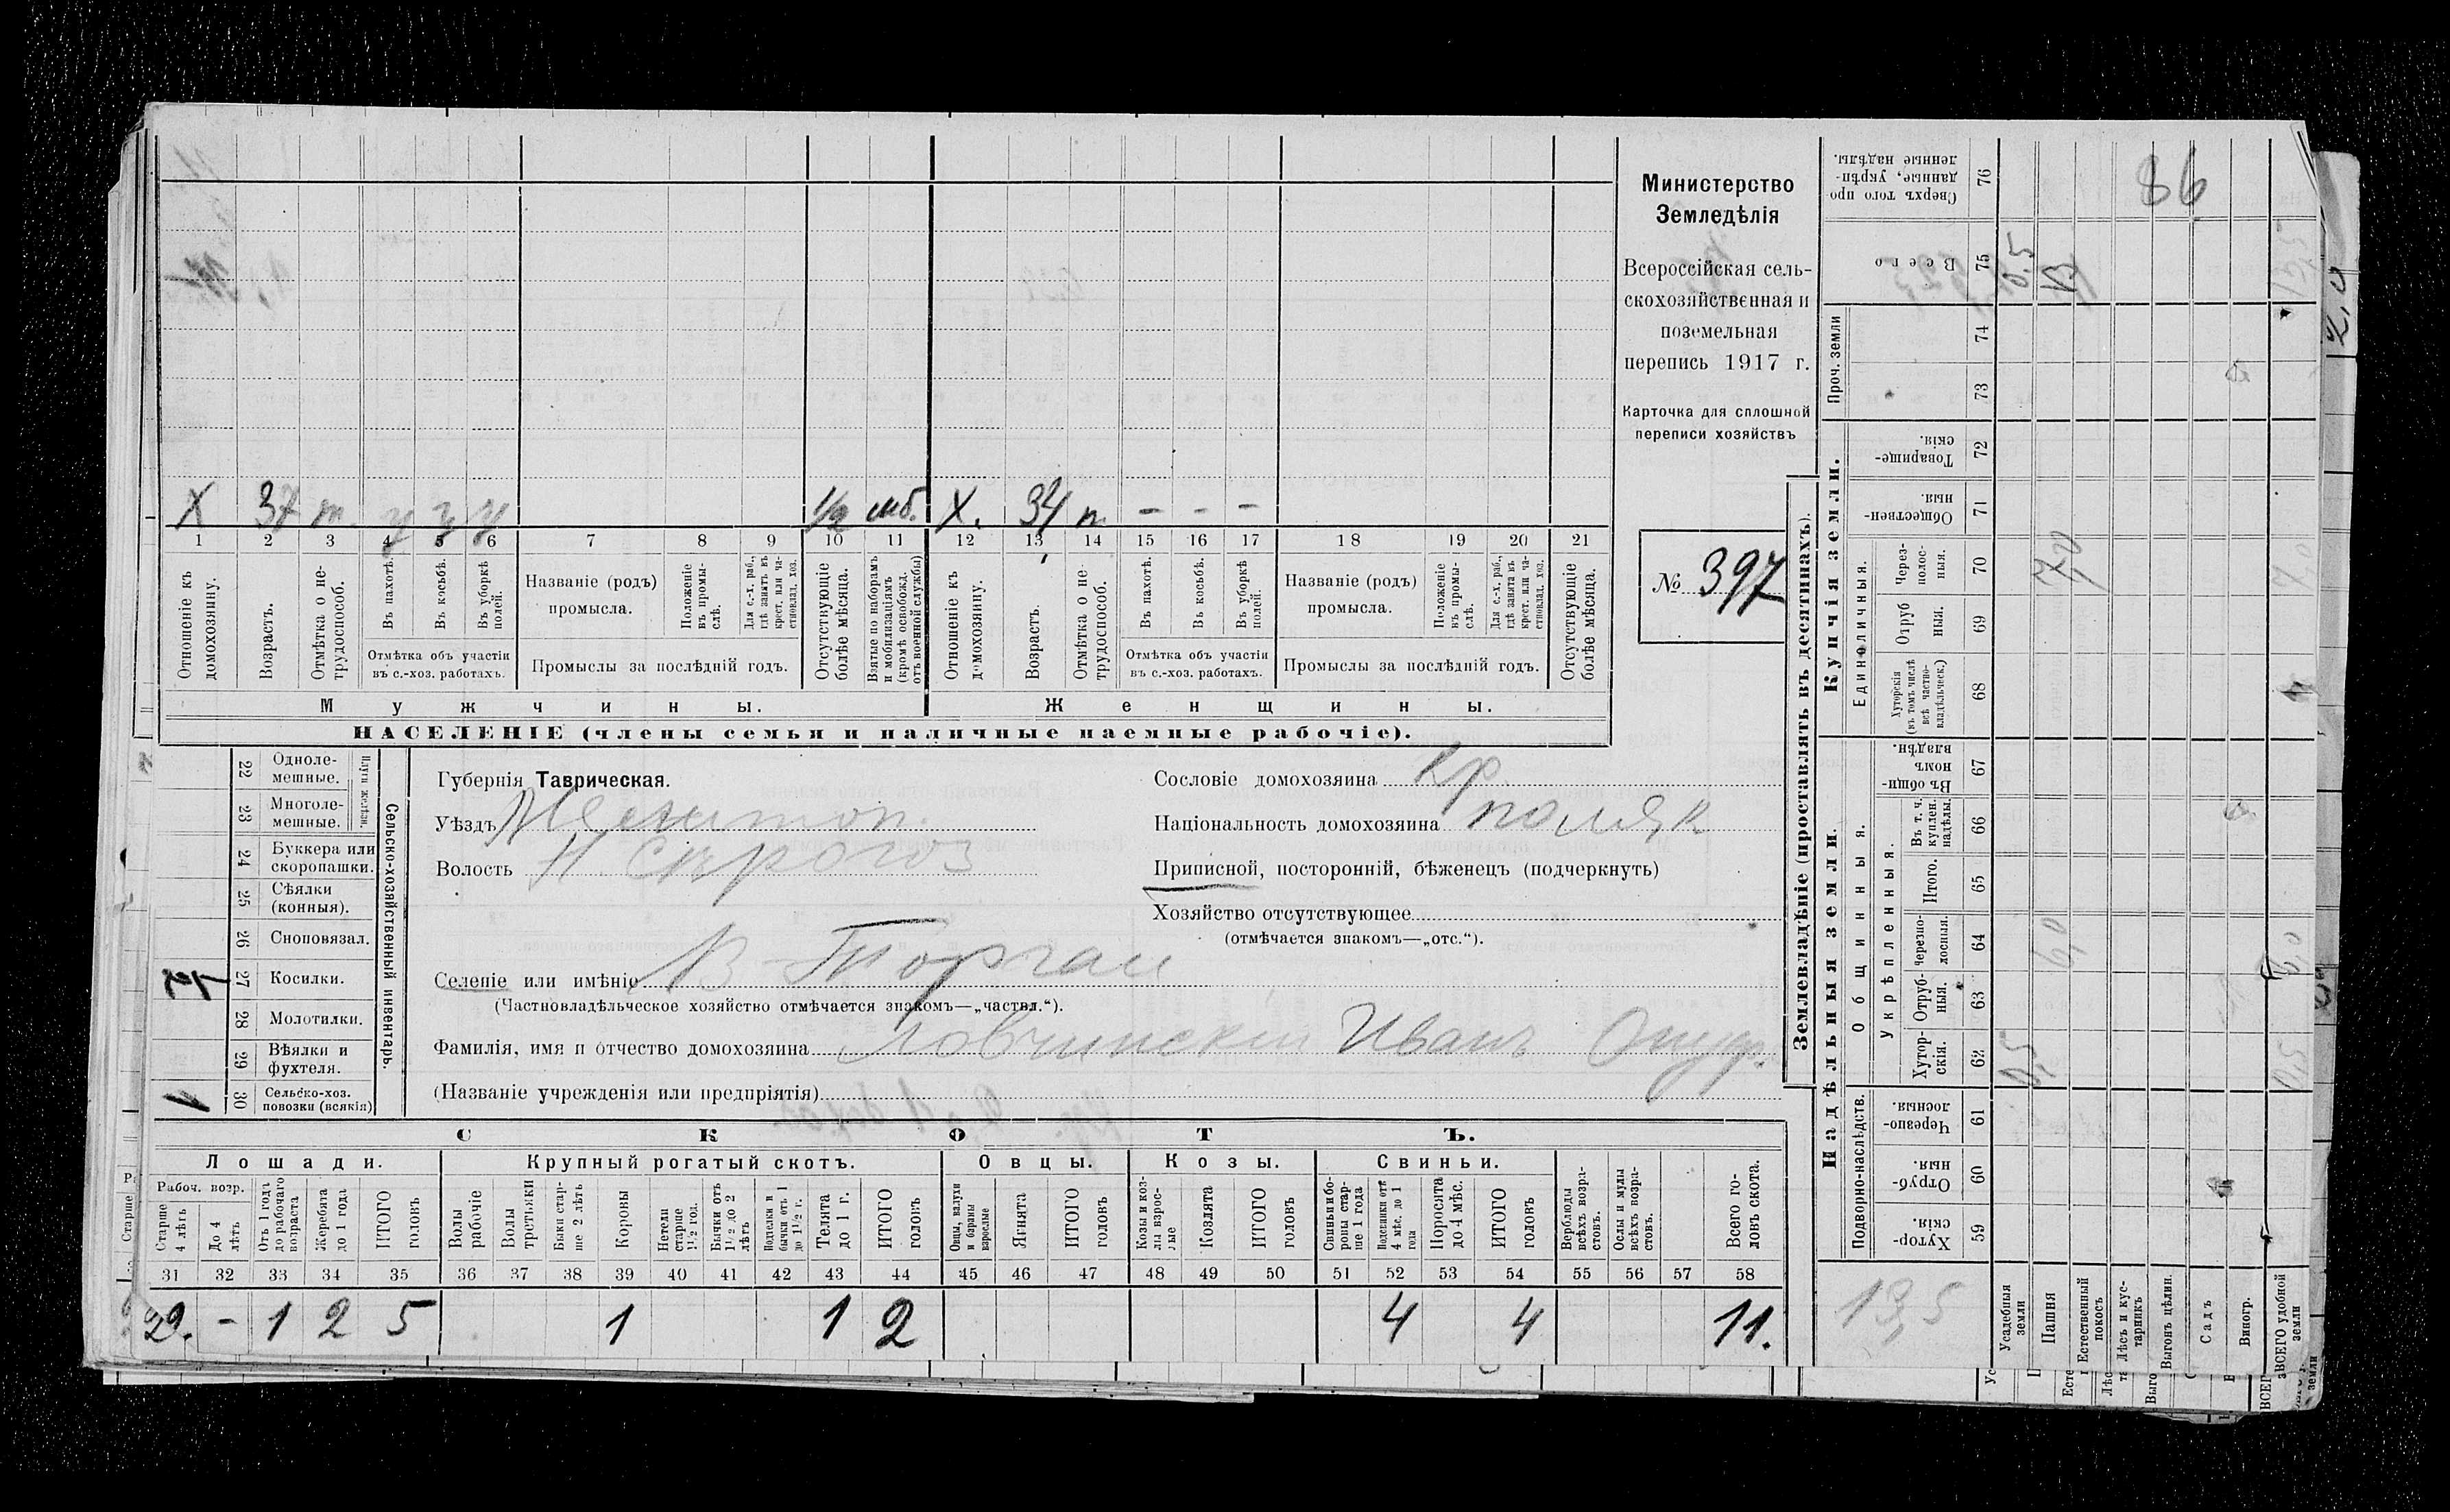 Министерство
Земледѣлія
Всероссійская сель-
скохозяйственная и
поземельная
перепись 1917 г.
Карточка для сплошной
переписи хозяйствъ
№ 397
X 37 1/2 моб. X. 34 п. - - -
1 2 3 4 5 6 7 8 9 10 11 12 13 14 15 16 17 18 19 20 21
Отношеніе къ домохозяину.
Возрастъ.
Отмѣтка о не-трудоспособ.
Въ пахотѣ.
Въ косьбѣ.
Въ уборкѣ полей.
Отмѣтка объ участіи
въ с.-хоз. работахъ.
Названіе (родъ)
промысла.
Положеніе въ промы-слѣ.
Для с.-х. раб., гдѣ занятъ въ крест. или ча-стновлад. хоз.
Промыслы за послѣдній годъ.
Отсутствующіе болѣе мѣсяца.
Взятые по наборамъ и мобилизаціямъ (кромѣ освобожд. отъ военной службы)
Отношеніе къ домохозяину.
Возрастъ.
Отмѣтка о не-трудоспособ.
Въ пахотѣ.
Въ косьбѣ.
Въ уборкѣ полей.
Отмѣтка объ участіи
въ с.-хоз. работахъ.
Названіе (родъ)
промысла.
Положеніе въ промы-слѣ.
Для с.-х. раб., гдѣ занята въ крест. или ча-стновлад. хоз.
Промыслы за послѣдній годъ.
Отсутствующіе болѣе мѣсяца.
Мужчины. Женщины.
НАСЕЛЕНІЕ (члены семьи и наличные наемные рабочіе).
Сельско-хозяйственный инвентарь.
Плуги желѣзн.
22 Одноле-мешные.
23 Многоле-мешные.
24 Буккера или скоропашки.
25 Сѣялки (конныя).
26 Сноповязал.
27 Косилки.
28 Молотилки.
29 Вѣялки и фухтеля.
30 Сельско-хоз. повозки (всякія)
1
Губернія Таврическая.
Уѣздъ Мелитоп.
Волость Н Сѣрогоз
Селеніе или имѣніе В-Торгаи
(Частновладѣльческое хозяйство отмѣчается знакомъ—„частвл.“).
Фамилія, имя и отчество домохозяина Ловчинскій Иванъ
(Названіе учрежденія или предпріятія)
Сословіе домохозяина Кр.
Національность домохозяина поляк
Приписной, посторонній, бѣженецъ (подчеркнуть)
Хозяйство отсутствующее
(отмѣчается знакомъ—„отс.“).
СКОТЪ.
Лошади. Крупный рогатый скотъ. Овцы. Козы. Свиньи.
Рабоч. возр.
Старше 4 лѣтъ
До 4 лѣтъ
Отъ 1 года до рабочаго возраста
Жеребята до 1 года
ИТОГО головъ
Волы рабочіе
Волы третьяки
Быки стар-ше 2 лѣтъ
Коровы
Нетели старше 1 1/2 год.
Бычки отъ 1 1/2 до 2 лѣтъ
Подтелки и бычки отъ 1 до 1 1/2 г.
Телята до 1 г.
ИТОГО головъ
Овцы, валухи и бараны взрослые
Ягнята
ИТОГО головъ
Козы и коз-лы взрос-лые
Козлята
ИТОГО головъ
Свиньи и бо-ровы стар-ше 1 года
Подсвинки отъ 4 мѣс. до 1 года
Поросята до 4 мѣс.
ИТОГО головъ
Верблюды всѣхъ возра-стовъ.
Ослы и мулы всѣхъ возра-стовъ.
Всего го-ловъ скота.
31 32 33 34 35 36 37 38 39 40 41 42 43 44 45 46 47 48 49 50 51 52 53 54 55 56 57 58
- 1 2 5 1 1 2 4 4 11.
Землевладѣніе (проставлять въ десятинахъ).
Надѣльныя земли. Купчія земли. Проч. земли
Подворно-наслѣдств. Общинныя. Единоличныя.
Укрѣпленныя.
59 Хутор-скія.
60 Отруб-ныя.
61 Черезпо-лосныя.
62 Хутор-скія.
63 Отруб-ныя.
64 Черезпо-лосныя.
65 Итого.
66 Въ т. ч. куплен. надѣлы.
67 Въ общи-номъ владѣн.
68 Хуторскія (въ томъ числѣ всѣ частно-владѣльческ.)
69 Отруб ныя.
70 Через-полос-ныя.
71 Обществен-ныя.
72 Товарище-скія.
73
74
75 Всего
76 Сверхъ того про данные, укрѣп-ленные надѣлы.
Усадебныя земли 0,5 0,5
Пашня 6,0 7,0 13
Естественный покосъ
Лѣсъ и кус-тарникъ
Выгонъ цѣлин.
Садъ
Виногр.
ВСЕГО удобной земли
13,5
86